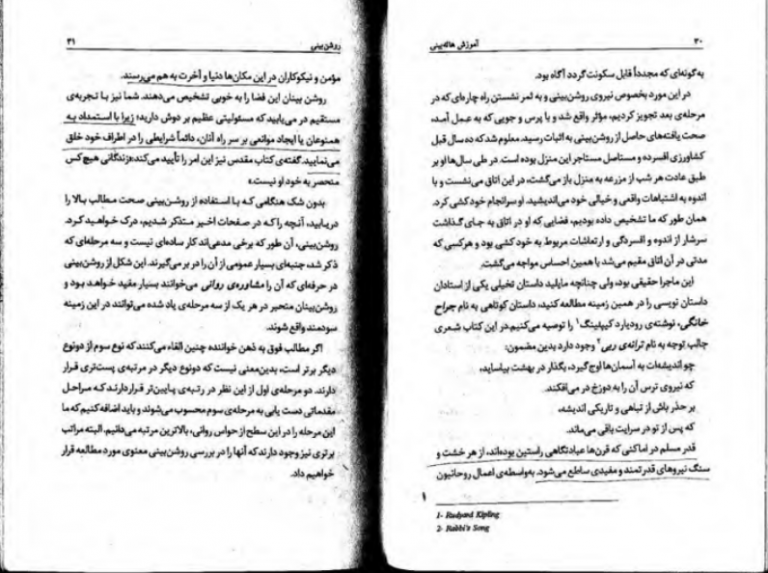 ۳۰
آموزش هاله‌بینی
به گونه‌ای که مجدداً قابل سکونت گردد آگاه بود.
در این مورد بخصوص نیروی روشن‌بینی و به ثمر نشستن راه چاره‌ای که در
مرحله‌ی بعد تجویز کردیم، مؤثر واقع شد و با پرس و جویی که به عمل آمد،
صحت یافته‌های حاصل از روشن‌بینی به اثبات رسید. معلوم شد که ده سال قبل
کشاورزی افسرده و مستاصل مستاجر این منزل بوده است. در طی سال‌ها او بر
طبق عادت هر شب از مزرعه به منزل باز می‌گشت، در این اتاق می‌نشست و با
اندوه به اشتباهات واقعی و خیالی خود می‌اندیشید. او سرانجام خود کشی کرد.
همان طور که ما تشخیص داده بودیم، فضایی که او در اتاق به جای گذاشت
سرشار از اندوه و افسردگی و ارتعاشات مربوط به خود کشی بود و هرکسی که
مدتی در آن اتاق مقیم می‌شد با همین احساس مواجه می‌گشت.
این ماجرا حقیقی بود، ولی چنانچه مایلید داستان تخیلی یکی از استادان
داستان نویسی را در همین زمینه مطالعه کنید، داستان کوتاهی به نام جراح
خانگی، نوشته‌ی رودیارد کیپلینگ¹ را توصیه می‌کنیم. در این کتاب شعری
جالب توجه به نام ترانه‌ی ربی² وجود دارد بدین مضمون:
چو اندیشه‌ات به آسمان‌ها اوج گیرد، بگذار در بهشت بیاساید،
که نیروی ترس آن را به دوزخ در می‌افکند.
بر حذر باش از تباهی و تاریکی اندیشه،
که پس از تو در سرایت باقی می‌ماند.
قدر مسلم در اماکنی که قرن‌ها عبادتگاهی راستین بوده‌اند، از هر خشت و
سنگ نیروهای قدرتمند و مفیدی ساطع می‌شود. به‌واسطه‌ی اعمال روحانیون
1- Rudyard Kipling
2- Rabbi's Song
روشن‌بینی
۳۱
مؤمن و نیکوکاران در این مکان‌ها دنیا و آخرت به هم می‌رسند.
روشن بینان این فضا را به خوبی تشخیص می‌دهند. شما نیز با تجربه‌ی
مستقیم در می‌یابید که مسئولیتی عظیم بر دوش دارید؛ زیرا با استمداد به
همنوعان یا ایجاد موانعی بر سر راه آنان، دائماً شرایطی را در اطراف خود خلق
می‌نمایید. گفته‌ی کتاب مقدس نیز این امر را تأیید می‌کند: «زندگانی هیچ کس
منحصر به خود او نیست.»
بدون شک هنگامی که با استفاده از روشن‌بینی صحت مطالب بالا را
دریابید، آنچه را که در صفحات اخیر متذکر شدیم، درک خواهید کرد.
روشن‌بینی، آن طور که برخی مدعی‌اند کار ساده‌ای نیست و سه مرحله‌ای که
ذکر شد، جنبه‌ای بسیار عمومی از آن را در بر می‌گیرند. این شکل از روشن‌بینی
در حرفه‌ای که آن را مشاوره‌ی روانی می‌خوانند بسیار مفید خواهد بود و
روشن‌بینان متبحر در هر یک از سه مرحله‌ی یاد شده می‌توانند در این زمینه
سودمند واقع شوند.
اگر مطالب فوق به ذهن خواننده چنین القاء می‌کنند که نوع سوم از دونوع
دیگر برتر است، بدین‌معنی نیست که دونوع دیگر در مرتبه‌ی پست‌تری قرار
دارند. دو مرحله‌ی اول از این نظر در رتبه‌ی پایین‌تر قرار دارند که مراحل
مقدماتی دست یابی به مرحله‌ی سوم محسوب می‌شوند و باید اضافه کنیم که ما
این مرحله را در این سطح از حواس روانی، بالاترین مرتبه می‌دانیم. البته مراتب
برتری نیز وجود دارند که آنها را در بررسی روشن‌بینی معنوی مورد مطالعه قرار
خواهیم داد.